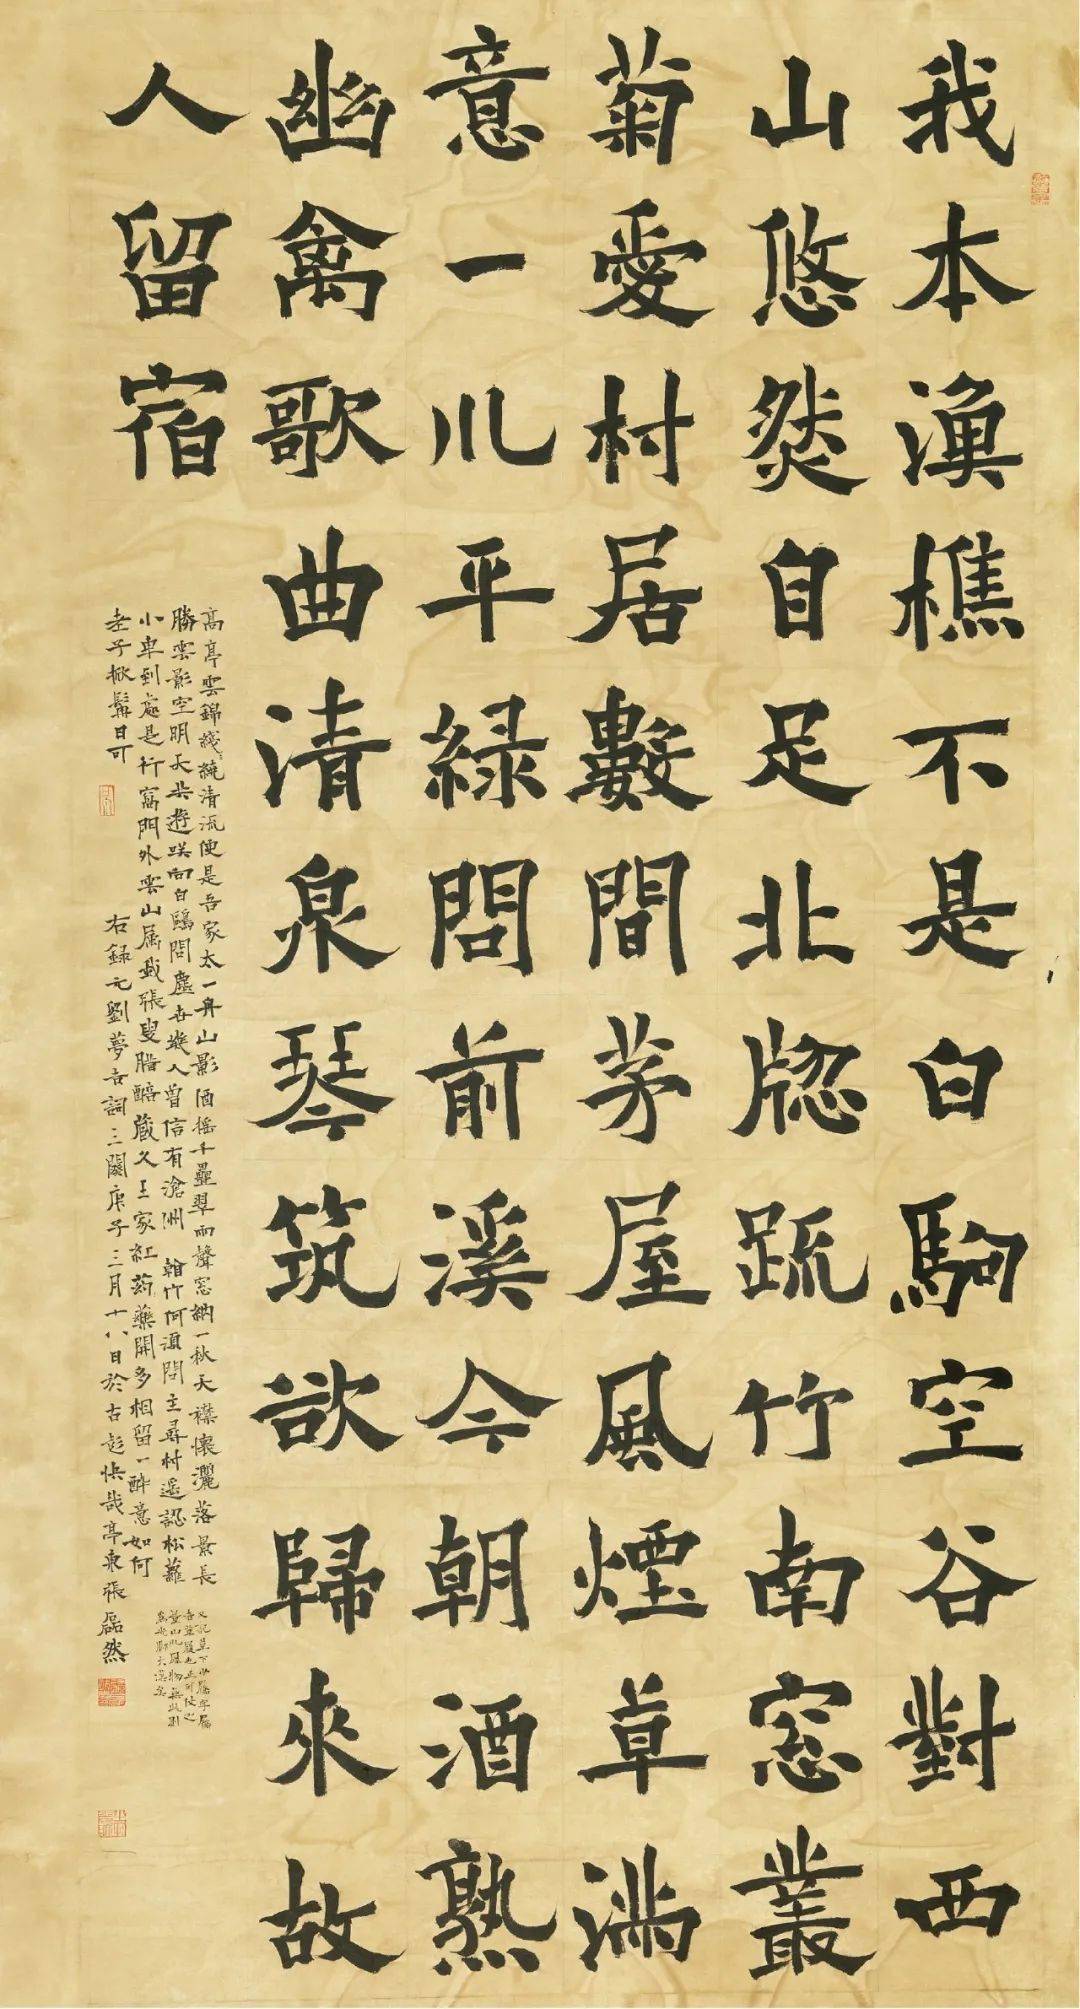 我本漁樵不是白駒空谷對西
山悠然自足北牕疏竹南窓叢
菊愛村居數間茅屋風煙草滿
意一川平緑問前溪今朝酒熟
幽禽歌曲清泉琴筑欲歸來故
人留宿
高亭雲錦綫繞清流便是吾家太一舟山影酒摇千疊翠雨聲窓納一秋天襟懷灑落景長
勝雲影空明天共遊笑向白鷗問塵世幾人曾信有滄洲 看竹何須問主尋村遥認松蘿
小車到處是行窩門外雲山属我張叟臘醅藏久王家紅葯藥開多相留一醉意如何
老子掀髯曰可 右録元劉夢吉詞三闋庚子三月十八日於古彭快哉亭東張磊然